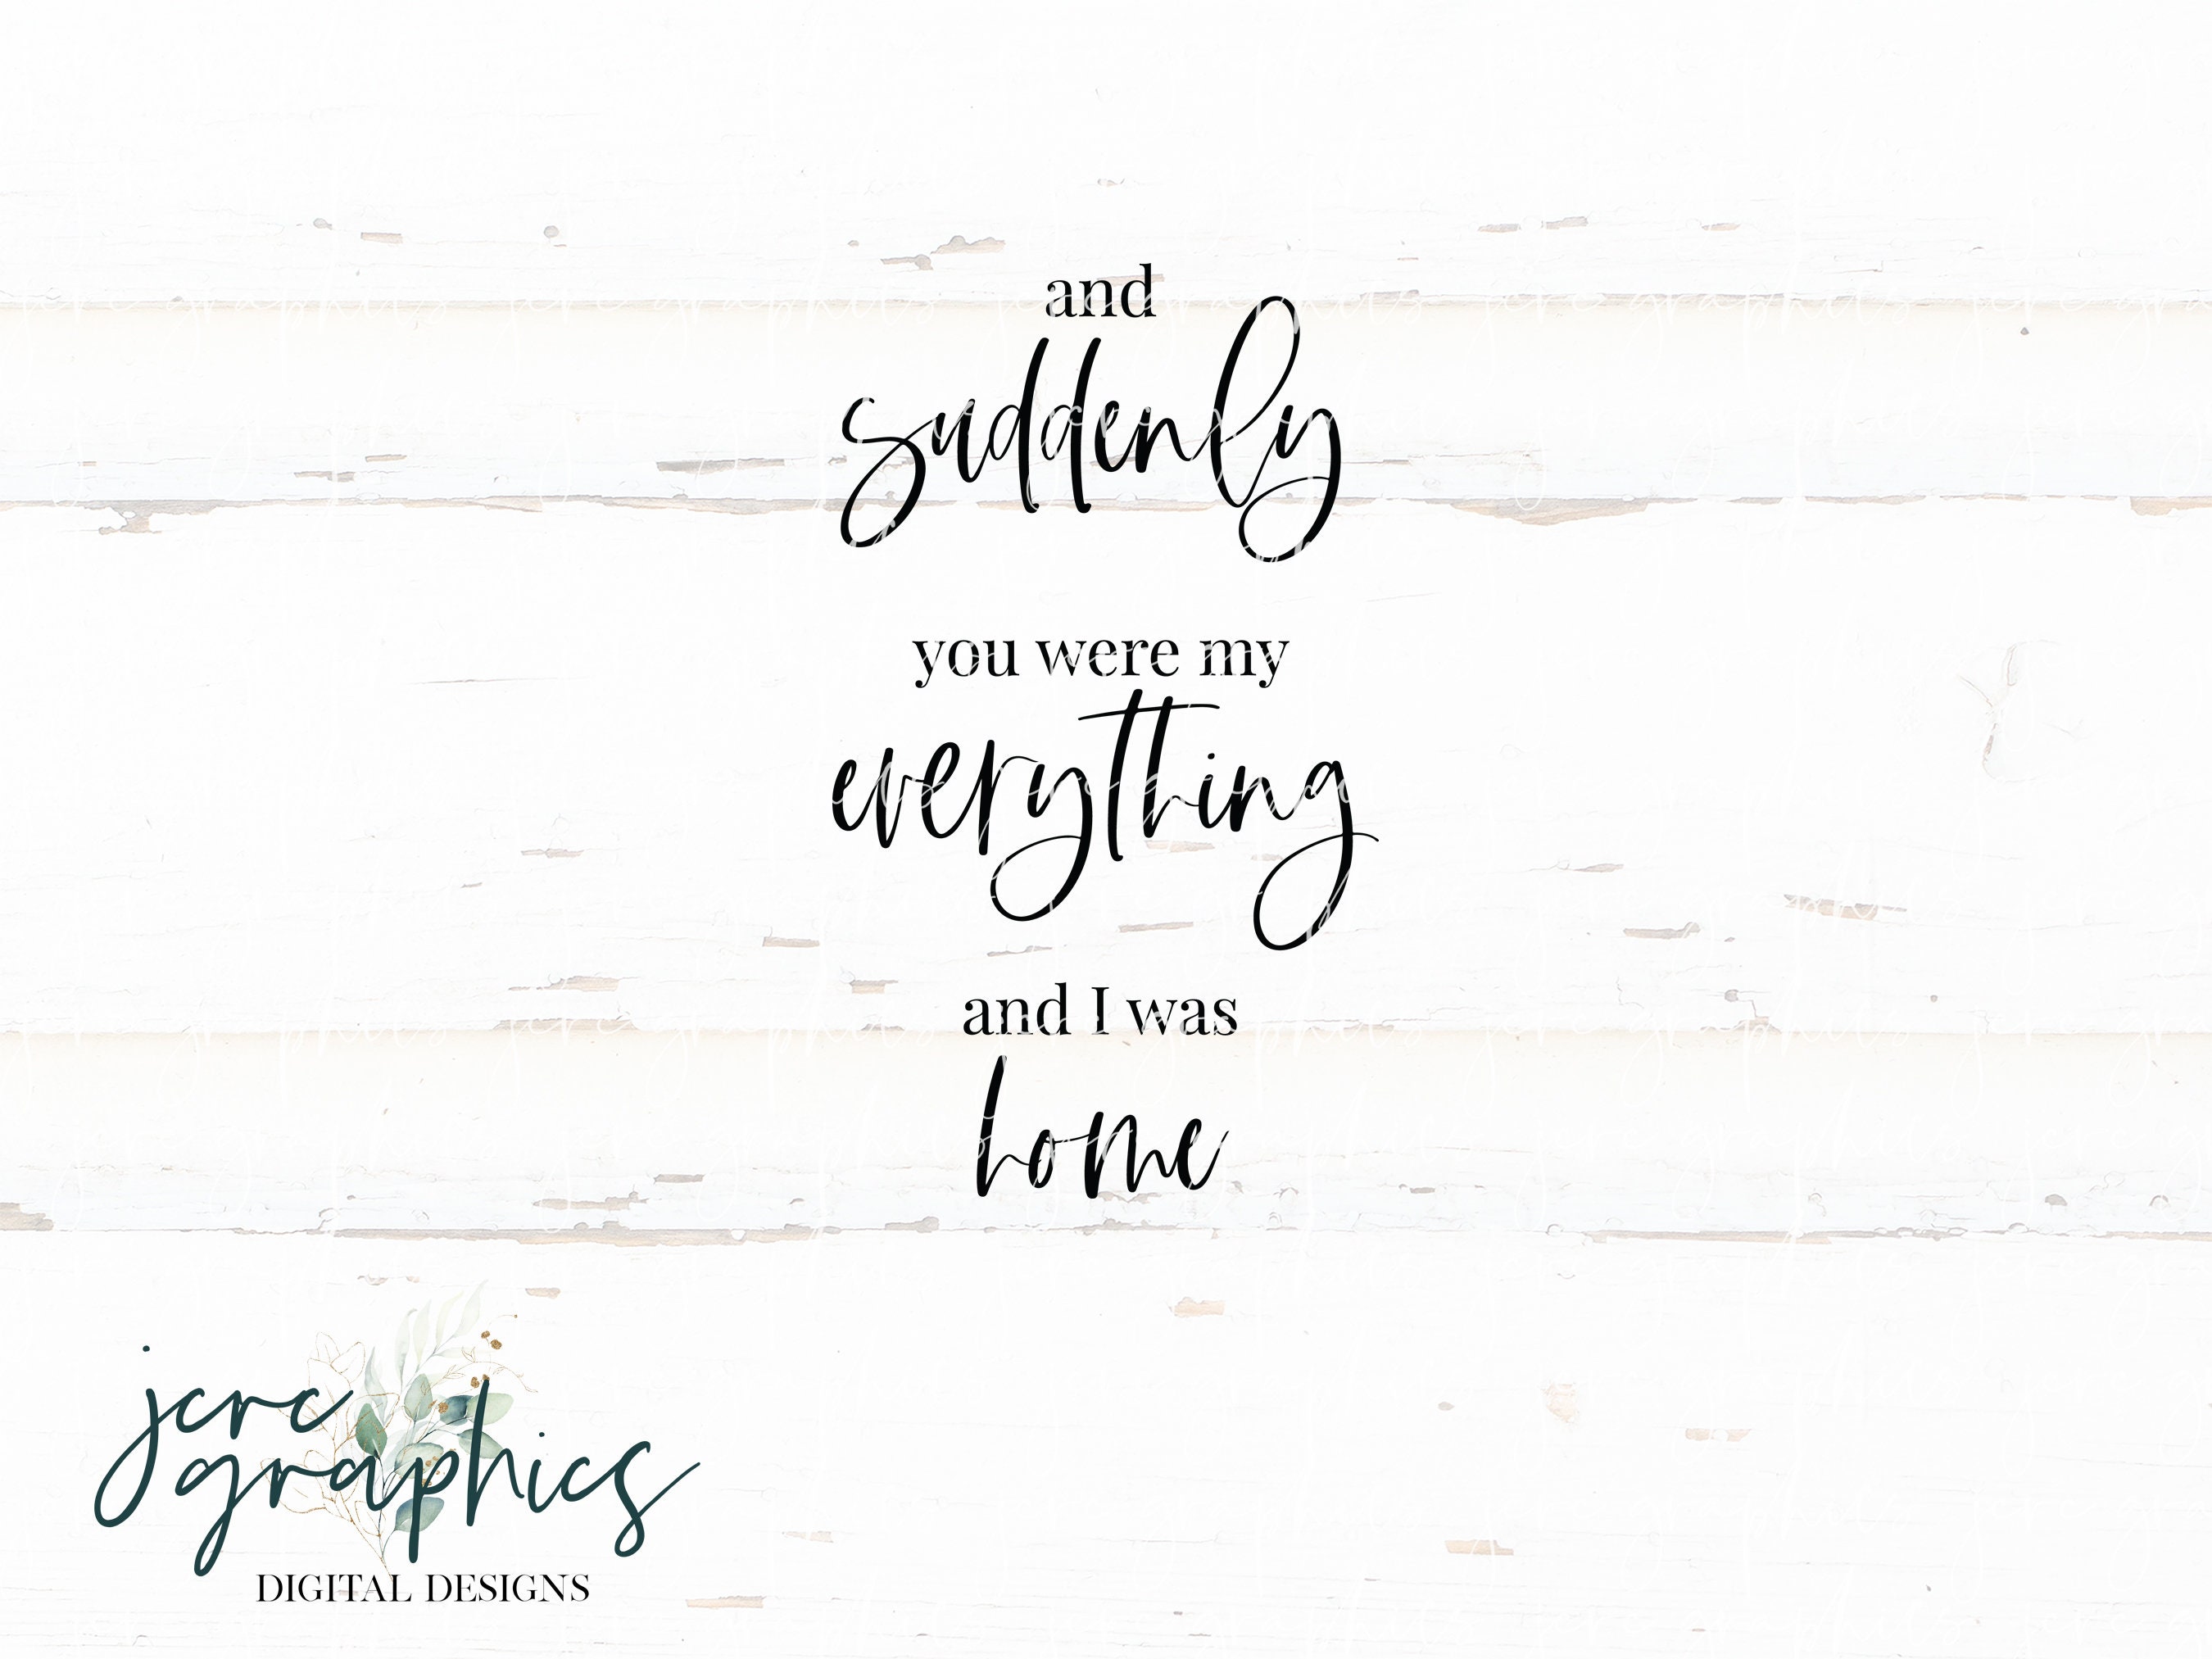 and
suddenly
you were my
everything
and I was
home
jcrc
graphics
DIGITAL DESIGNS